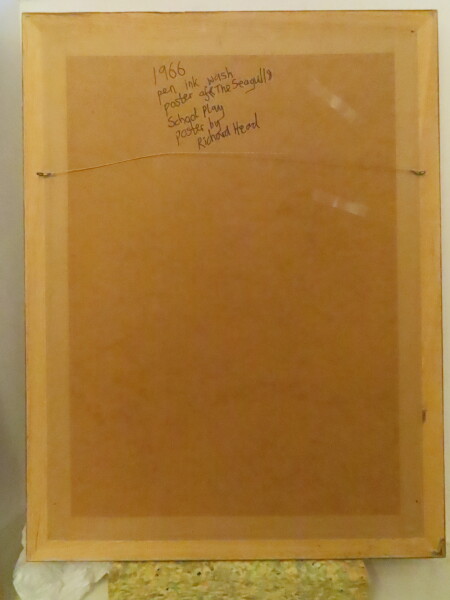 1966
pen ink wash
poster of "The Seagull"
School Play
poster by
Richard Head